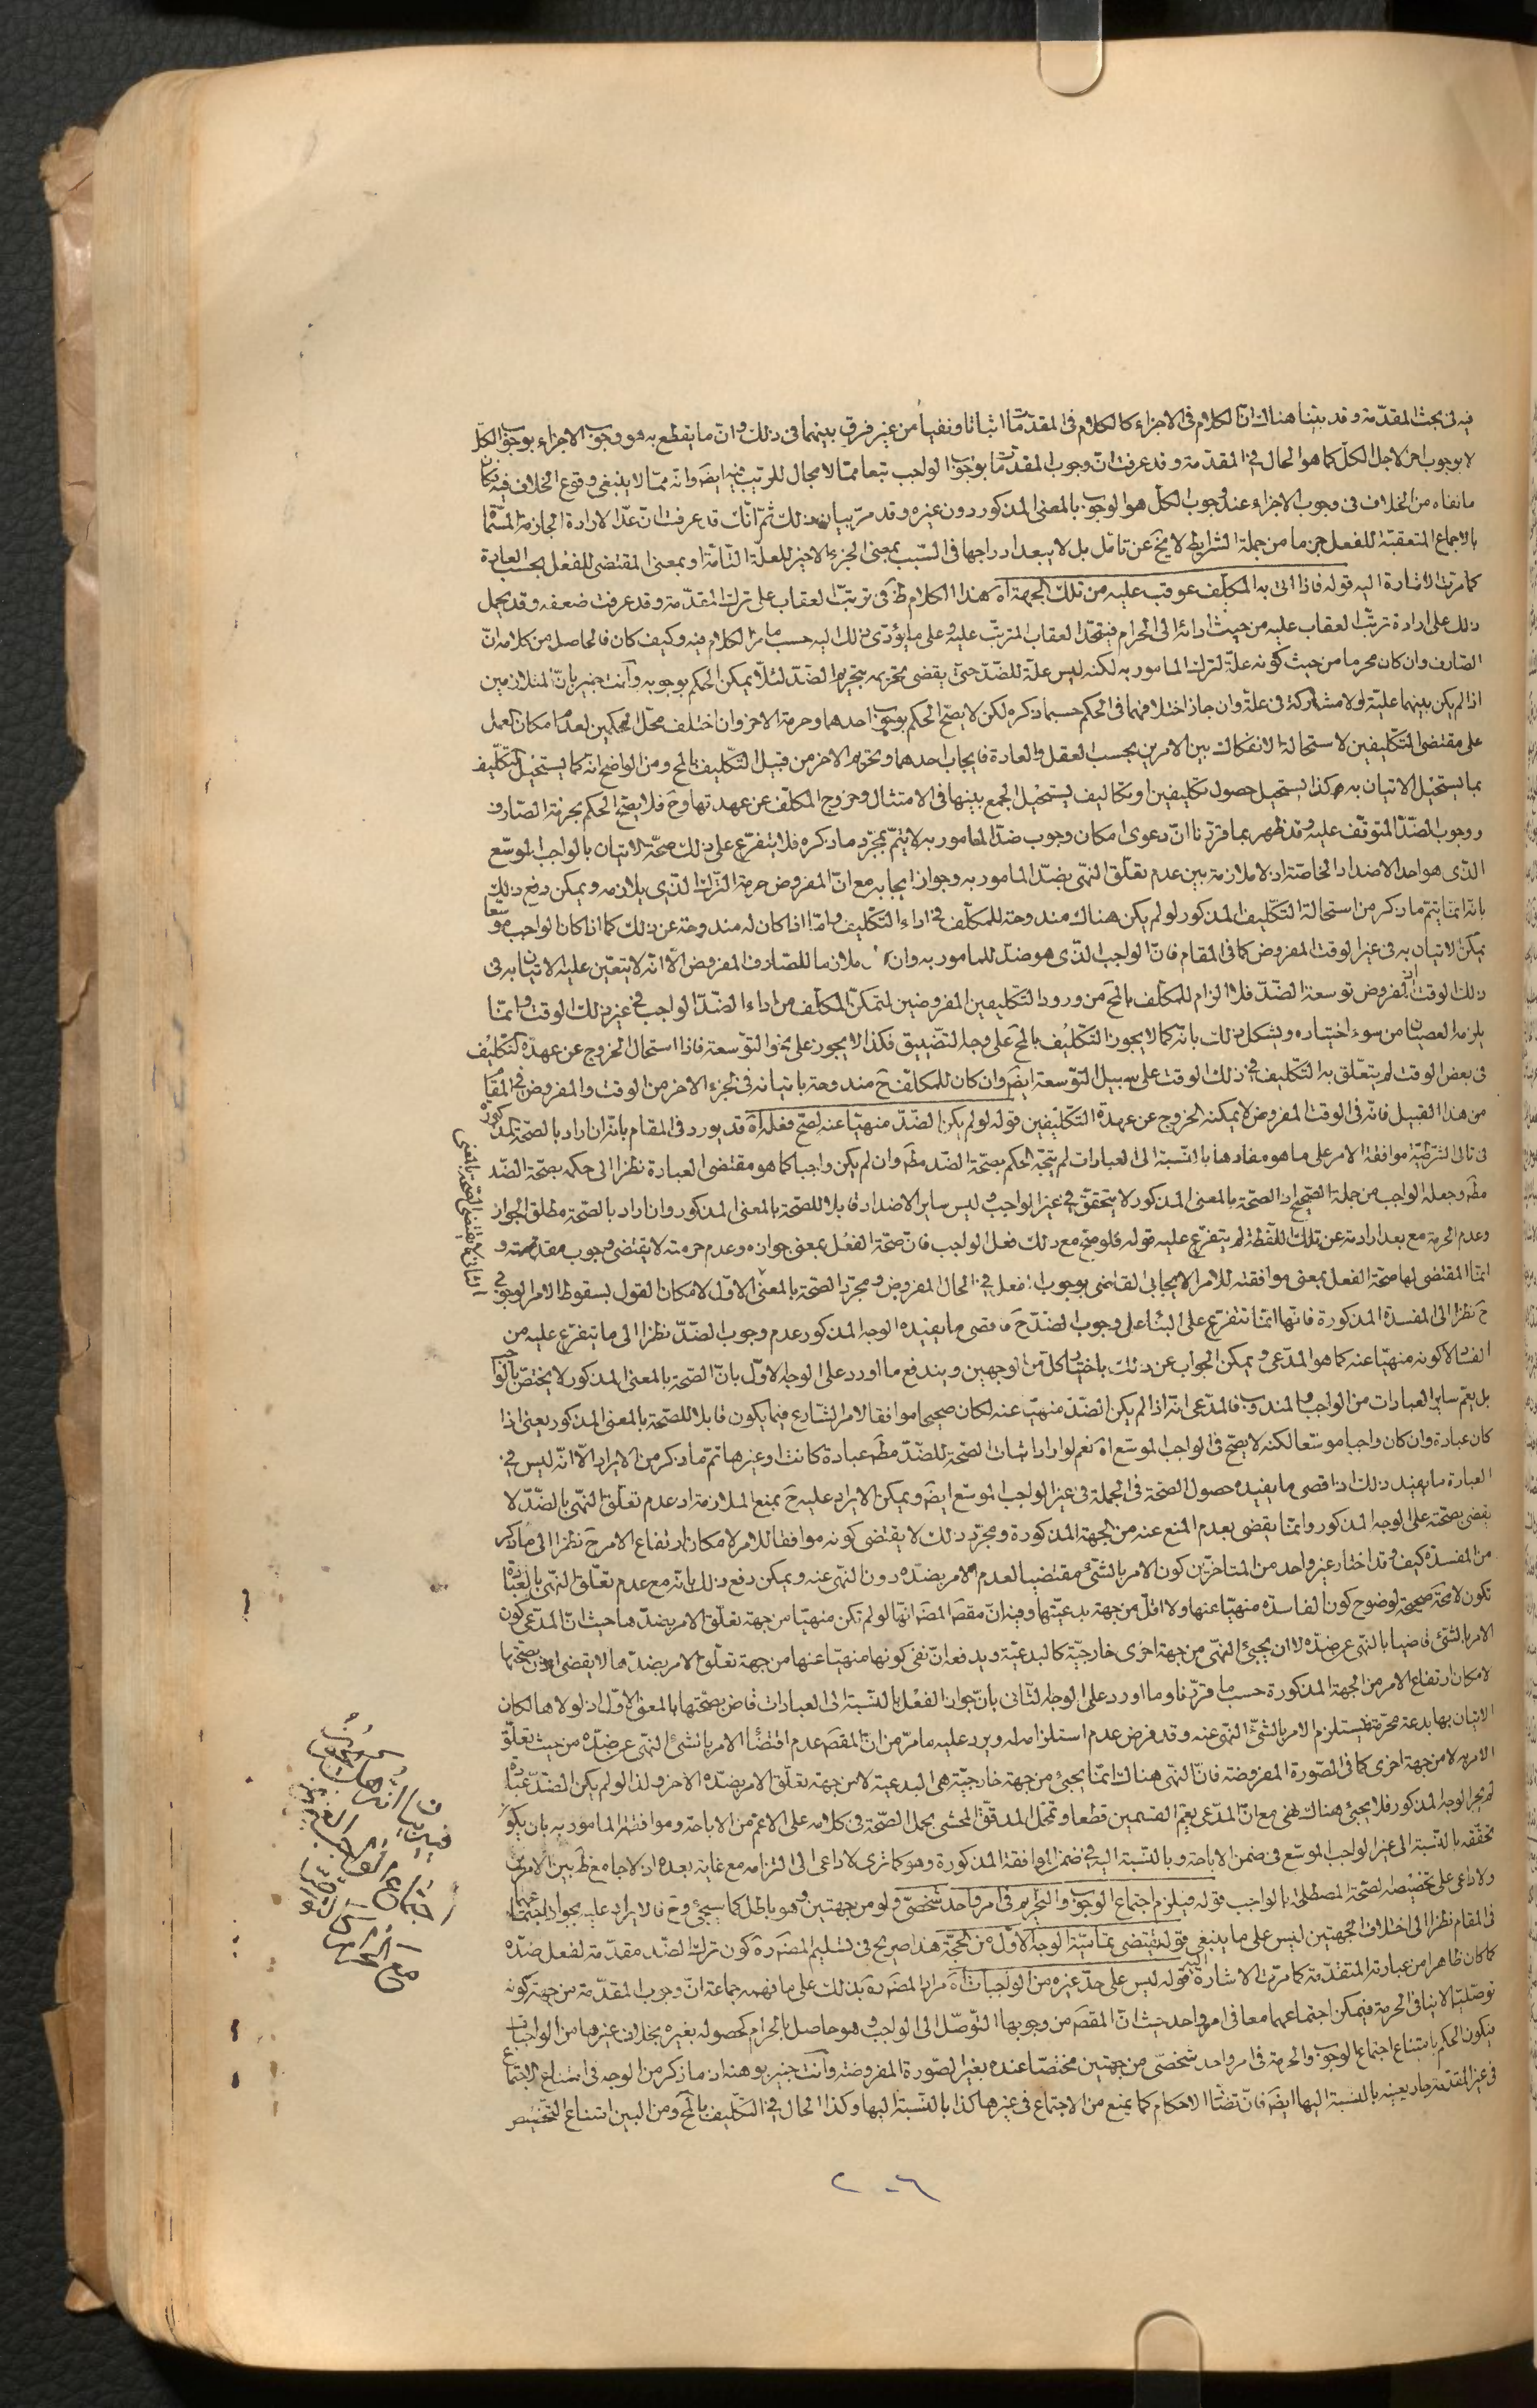 فيه فى بحث المقدّمة وقد بيّنا هناك انّ الكلام فى الاجزاء كالكلام فى المقدّمات اثباتا ونفيا من غير فرق بينهما فى ذلك وانّ ما يقطع به هو وجوب الاجزاء بوجوب الكلّ
لا بوجوب اخر لاجل الكلّ كما هو الحال فى المقدّمة وقد عرفت انّ وجوب المقدّمات بوجوب الواجب تبعا ممّا لا مجال للريب فيه ايضَ وانه ممّا لا ينبغى وقوع الخلاف فيه فكان
ما نفاه من الخلاف فى وجوب الاجزاء عند وجوب الكلّ هو الوجوب بالمعنى المذكور دون غيره وقد مرّ بيان ذلك ثمّ انّك قد عرفت انّ عدّ الارادة الجازمة المسمّاة
بالاجماع المتعقبة للفعل من جملة الشرايط لا يخ عن تامّل بل لا يبعد ادراجها فى السّبب بمعنى الجزء الاخير للعلّة التامّة او بمعنى المقتضى للفعل بحسب العادة
كما مرّت الاشارة اليه قوله فاذا اتى به المكلّف عوقب عليه من تلك الجهة اه هذا الكلام ظَ فى ترتّب العقاب على ترك المقدّمة وقد عرفت ضعفه وقد يحمل
ذلك على ارادة ترتّب العقاب عليه من حيث ادائه الى الحرام فيتّحد العقاب المترتّب عليه وعلى ما يؤدّى ذلك اليه حسب ما مرّ الكلام فيه وكيف كان فالحاصل من كلامه انّ
الصّارف وان كان محرما من حيث كونه علّة لترك المامور به لكنه ليس علّة للضّد حتى يقضى تحريمه بتحريم الضّد لئلّا يمكن الحكم بوجوبه وانت خبير بانّ المتلازمين
اذا لم يكن بينهما عليّة ولا مشاركة فى علّة وان جاز اختلافهما فى الحكم حسبما ذكره لكن لا يصحّ الحكم بوجوب احدهما وحرمة الاخر وان اختلف محلّ الحكمين لعدم امكان العمل
على مقتضى التكليفين لاستحالة الانفكاك بين الامرين بحسب العقل والعادة فايجاب احدهما وتحريم الاخر من قبيل التكليف بالمح ومن الواضح انه كما يستحيل التكليف
بما يستحيل الاتيان به فكذا يستحيل حصول تكليفين او تكاليف يستحيل الجمع بينها فى الامتثال وخروج المكلّف عن عهدتها وحَ فلا يصحّ الحكم بحرمة الصّارف
ووجوب الضّد المتوقّف عليه وقد ظهر بما قرّرنا انّ دعوى امكان وجوب ضدّ المامور به لا يتمّ بمجرّد ما ذكره فلا يتفرّع على ذلك صحّة الاتيان بالواجب الموسّع
الذى هو احد الاضداد الخاصّة اذ لا ملازمة بين عدم تعلّق النّهى بضدّ المامور به وجواز ايجابه مع انّ المفروض حرمة الترك الذى يلازمه ويمكن دفع ذلك
بانّه انما يتمّ ما ذكر من استحالة التكليف المذكور لو لم يكن هناك مندوحة للمكلّف فى اداء التكليف وامّا اذا كان له مندوحة عن ذلك كما اذا كان الواجب موسّعا
يمكن الاتيان به فى غير الوقت المفروض كما فى المقام فانّ الواجب الذى هو ضدّ للمامور به وان ملازما للصّارف المفروض الا انّه لا يتعيّن عليه الاتيان به فى
ذلك الوقت اذ المفروض توسعة الضّد فلا الزام للمكلّف بالمح من ورود التكليفين المفروضين لتمكّن المكلّف من اداء الضّد الواجب فى غير ذلك الوقت وانّما
يلزمه العصيان من سوء اختياره ويشكل ذلك بانّه كما لا يجوز التكليف بالمح على وجه التضييق فكذا لا يجوز على نحو التوسعة فاذا استحال الخروج عن عهدة التكليف
فى بعض الوقت لم يتعلّق به التكليف فى ذلك الوقت على سبيل التوسعة ايضَ وان كان للمكلّف حَ مندوحة باتيانه فى الجزء الاخر من الوقت والمفروض فى المقام
من هذا القبيل فانّه فى الوقت المفروض لا يمكنه الخروج عن عهدة التكليفين قوله لو لم يكن الضّد منهيّا عنه لصحّ فعله اه قد يورد فى المقام بانّه ان اراد بالصّحة المذكورة
فى تالى الشرطيّة موافقة الامر على ما هو مفادها بالنّسبة الى العبادات لم يتّجه الحكم بصحّة الضّد مطَ وان لم يكن واجبا كما هو مقتضى العبارة نظرا الى حكمه بصحّة الضّد
مطَ وجعله الواجب من جملة الصّحيح اذ الصّحة بالمعنى المذكور لا يتحقّق فى غير الواجب وليس ساير الاضداد قابلا للصّحة بالمعنى المذكور وان اراد بالصّحة مطلق الجواز
وعدم الحرمة مع بعد ارادته عن تلك اللّفظة لم يتفرّع عليه قوله فلو صح مع ذلك فعل الواجب فانّ صحّة الفعل بمعنى جوازه وعدم حرمته لا يقتضى وجوب مقدمته و
انمّا المقتضى لها صحّة الفعل بمعنى موافقته للامر الايجابى القاضى بوجوب الفعل فى الحال المفروض ومجرّد الصّحة بالمعنى الاوّل لامكان القول بسقوط الامر الوجوبى
حَ نظرا الى المفسدة المذكورة فانّها انمّا تتفرّع على البناء على وجوب الضّد حَ فاقصى ما يفيده الوجه المذكور عدم وجوب الضّد نظرا الى ما يتفرّع عليه من
الفساد لا كونه منهيّا عنه كما هو المدّعى ويمكن الجواب عن ذلك باختيار كلّ من الوجهين ويندفع ما اورد على الوجه الاوّل بانّ الصّحة بالمعنى المذكور لا يختصّ بالواجب
بل يعمّ ساير العبادات من الواجب والمندوب فالمدّعى انّه اذا لم يكن الضّد منهيّا عنه لكان صحيحا موافقا لامر الشّارع فيما يكون قابلا للصّحة بالمعنى المذكور يعنى اذا
كان عبادة وان كان واجبا موسّعا لكنه لا يصحّ فى الواجب الموسّع اه نعم لو اراد اثبات الصّحة للضّد مطَ عبادة كانت او غيرها تمّ ما ذكر من الايراد الّا انّه ليس فى
العبارة ما يفيد ذلك اذ اقصى ما يفيده حصول الصّحة فى الجملة فى غير الواجب الموسّع ايضَ ويمكن الايراد عليه حَ بمنع الملازمة اذ عدم تعلّق النّهى بالضّد لا
يقضى بصحّته على الوجه المذكور وانمّا يقضى بعدم المنع عنه من الجهة المذكورة ومجرّد ذلك لا يقتضى كونه موافقا للامر لامكان ارتفاع الامر حَ نظرا الى ما ذكر
من المفسدة كيف وقد اختار غير واحد من المتاخّرين كون الامر بالشىء مقتضيا لعدم الامر بضدّه دون النّهى عنه ويمكن دفع ذلك بانّه مع عدم تعلّق النّهى بالعبادة
تكون لا محَة صحيحة لوضوح كون الفاسدة منهيّا عنها ولا اقلّ من جهة بدعيّتها وفيه انّ مقصَ المصَ انّها لو لم تكن منهيّا من جهة تعلّق الامر بضدّها حيث انّ المدّعى كون
الامر بالشىء قاضيا بالنّهى عن ضدّه لا ان يجىء النّهى من جهة اخرى خارجيّة كالبدعيّة ويدفعه انّ نفى كونها منهيّا عنها من جهة تعلّق الامر بضدّها لا يقضى اذن بصحّتها
لامكان ارتفاع الامر من الجهة المذكورة حسب ما قرّرنا وما اورد على الوجه الثّانى بانّ جواز الفعل بالنّسبة الى العبادات قاض بصحّتها بالمعنى الاوّل اذ لولاها لكان
الاتيان بها بدعة محرّمة فيستلزم الامر بالشىء النّهى عنه وقد فرض عدم استلزامه له ويرد عليه ما مرّ من انّ المقصَ عدم اقتضاء الامر بالشىء النّهى عن ضدّه من حيث تعلّق
الامر به لا من جهة اخرى كما فى الصّورة المفروضة فانّ النّهى هناك انمّا يجىء من جهة خارجيّة هى البدعية لا من جهة تعلّق الامر بضدّه الاخر ولذا لو لم يكن الضّد عبادة
لم يجر الوجه المذكور فلا يجىء هناك نهى مع انّ المدّعى يعمّ القسمين قطعا وتمحّل المدقّق المحشى بحمل الصّحة فى كلامه على الاعمّ من الاباحة وموافقة المامور به بان يكون
تحقّقه بالنّسبة الى غير الواجب الموسّع فى ضمن الاباحة وبالنّسبة اليه فى ضمن الموافقة المذكورة وهو كما ترى لا داعى الى التزامه مع غاية بعده اذ لا جامع ظَ بين الامرين
ولا داعى على تخصيصه الصّحة المصطلحة بالواجب قوله فيلزم اجتماع الوجوب والتحريم فى امر واحد شخصّى ولو من جهتين وهو باطل كما سيجىء وحَ فالايراد عليه بجواز اجتماعهما
فى المقام نظرا الى اختلاف الجهتين ليس على ما ينبغى قوله يقتضى بتماميّة الوجه الاوّل من الحجّة هذا صريح فى تسليم المصَ ره كون ترك الضّد مقدّمة لفعل ضدّه
كما كان ظاهرا من عبارته المتقدّمة كما مرّت الاشارة اليه قوله ليس على حدّ غيره من الواجبات اه مراد المصَ ره بذلك على ما فهمه جماعة انّ وجوب المقدّمة من جهة كونه
توصّليا لا ينافى الحرمة فيمكن اجتماعهما معا فى امر واحد حيث انّ المقصَ من وجوبها التّوصّل الى الواجب وهو حاصل بالحرام كحصوله بغيره بخلاف غيرها من الواجبات
فيكون الحكم بامتناع اجتماع الوجوب والحرمة فى امر واحد شخصّى من جهتين مختصّا عنده بغير الصّورة المفروضة وانت خبير بوهنه اذ ما ذكر من الوجه فى امتناع الاجتماع
فى غير المقدّمة جار بعينه بالنّسبة اليها ايضَ فانّ تضادّ الاحكام كما يمنع من الاجتماع فى غيرها كذا بالنّسبة اليها وكذا الحال فى التكليف بالمح ومن البين امتناع التخصيص
٢٠٦